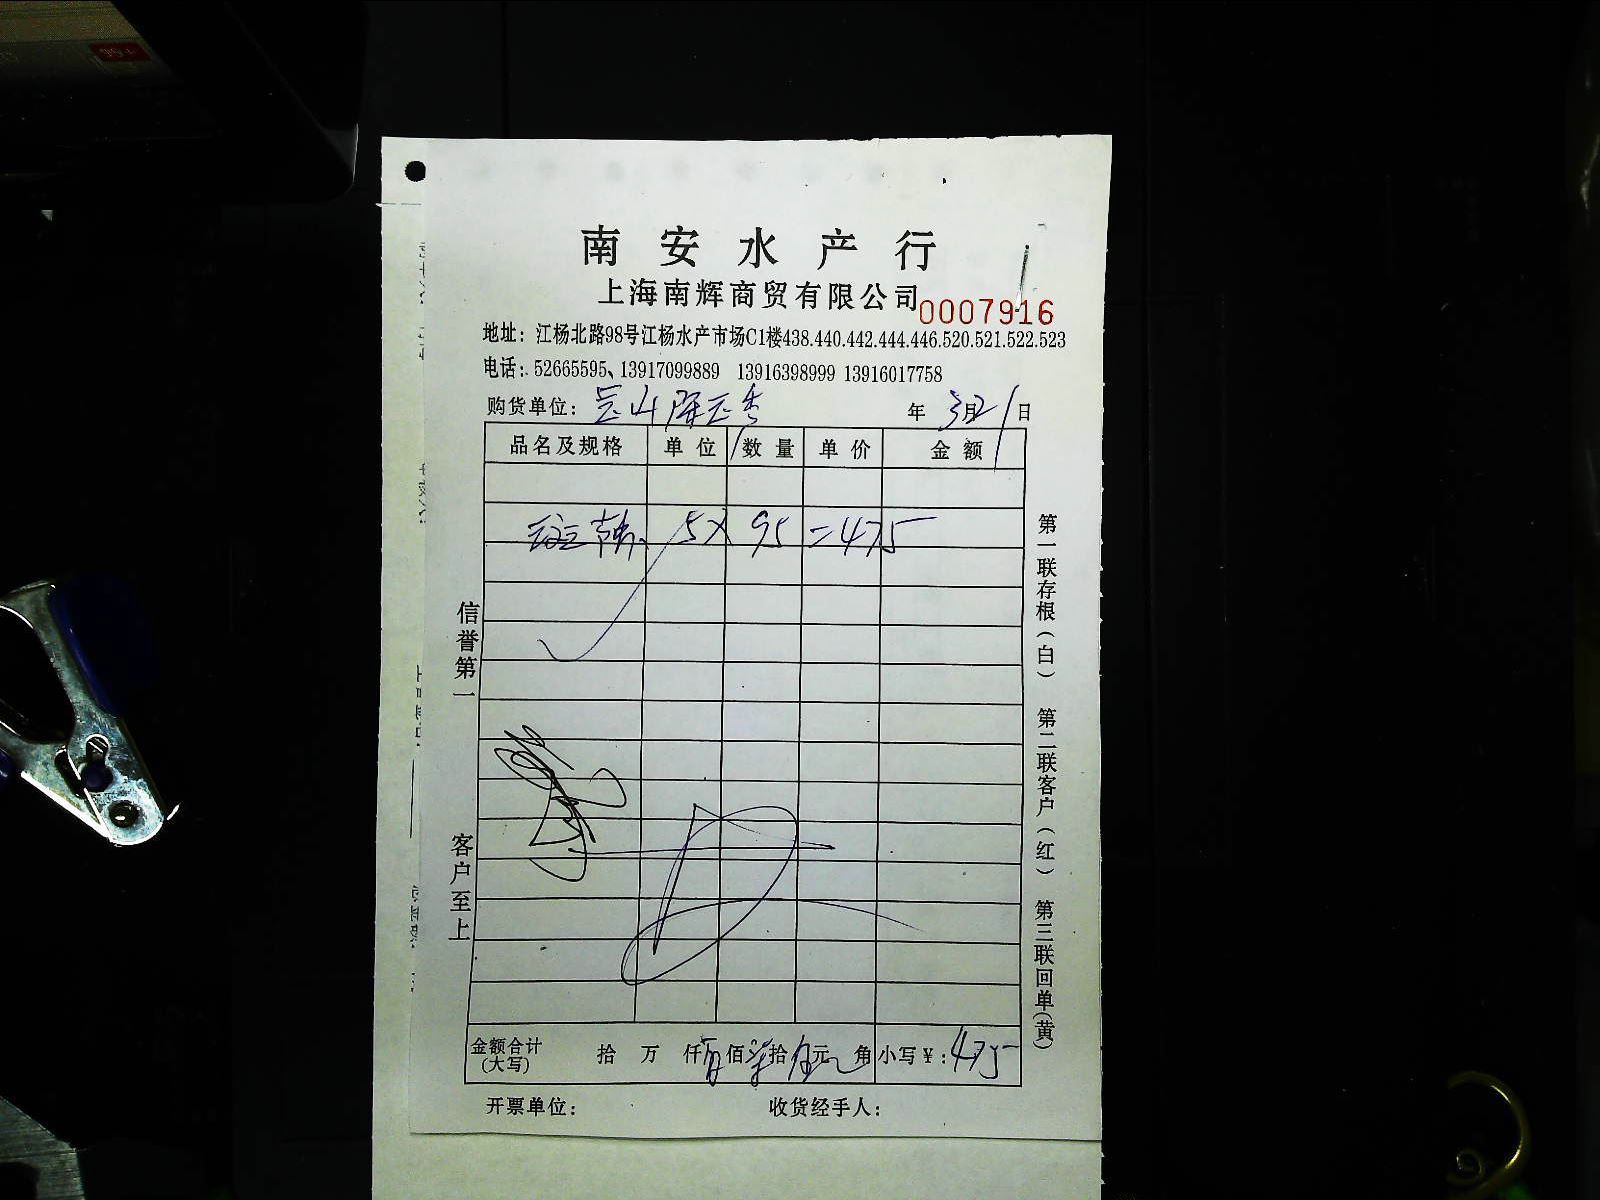 南安水产行
上海南辉商贸有限公司 0007916
地址：江杨北路98号江杨水产市场C1楼438.440.442.444.446.520.521.522.523
电话：52665595、13917099889 13916398999 13916017758
购货单位：昆山 年 3月21日
品名及规格 单位 数量 单价 金额
5× 95 =475
信誉第一
客户至上
第一联存根（白） 第二联客户（红） 第三联回单（黄）
金额合计（大写） 拾 万 仟肆佰柒拾伍元 角 小写￥：475
开票单位： 收货经手人：
99+